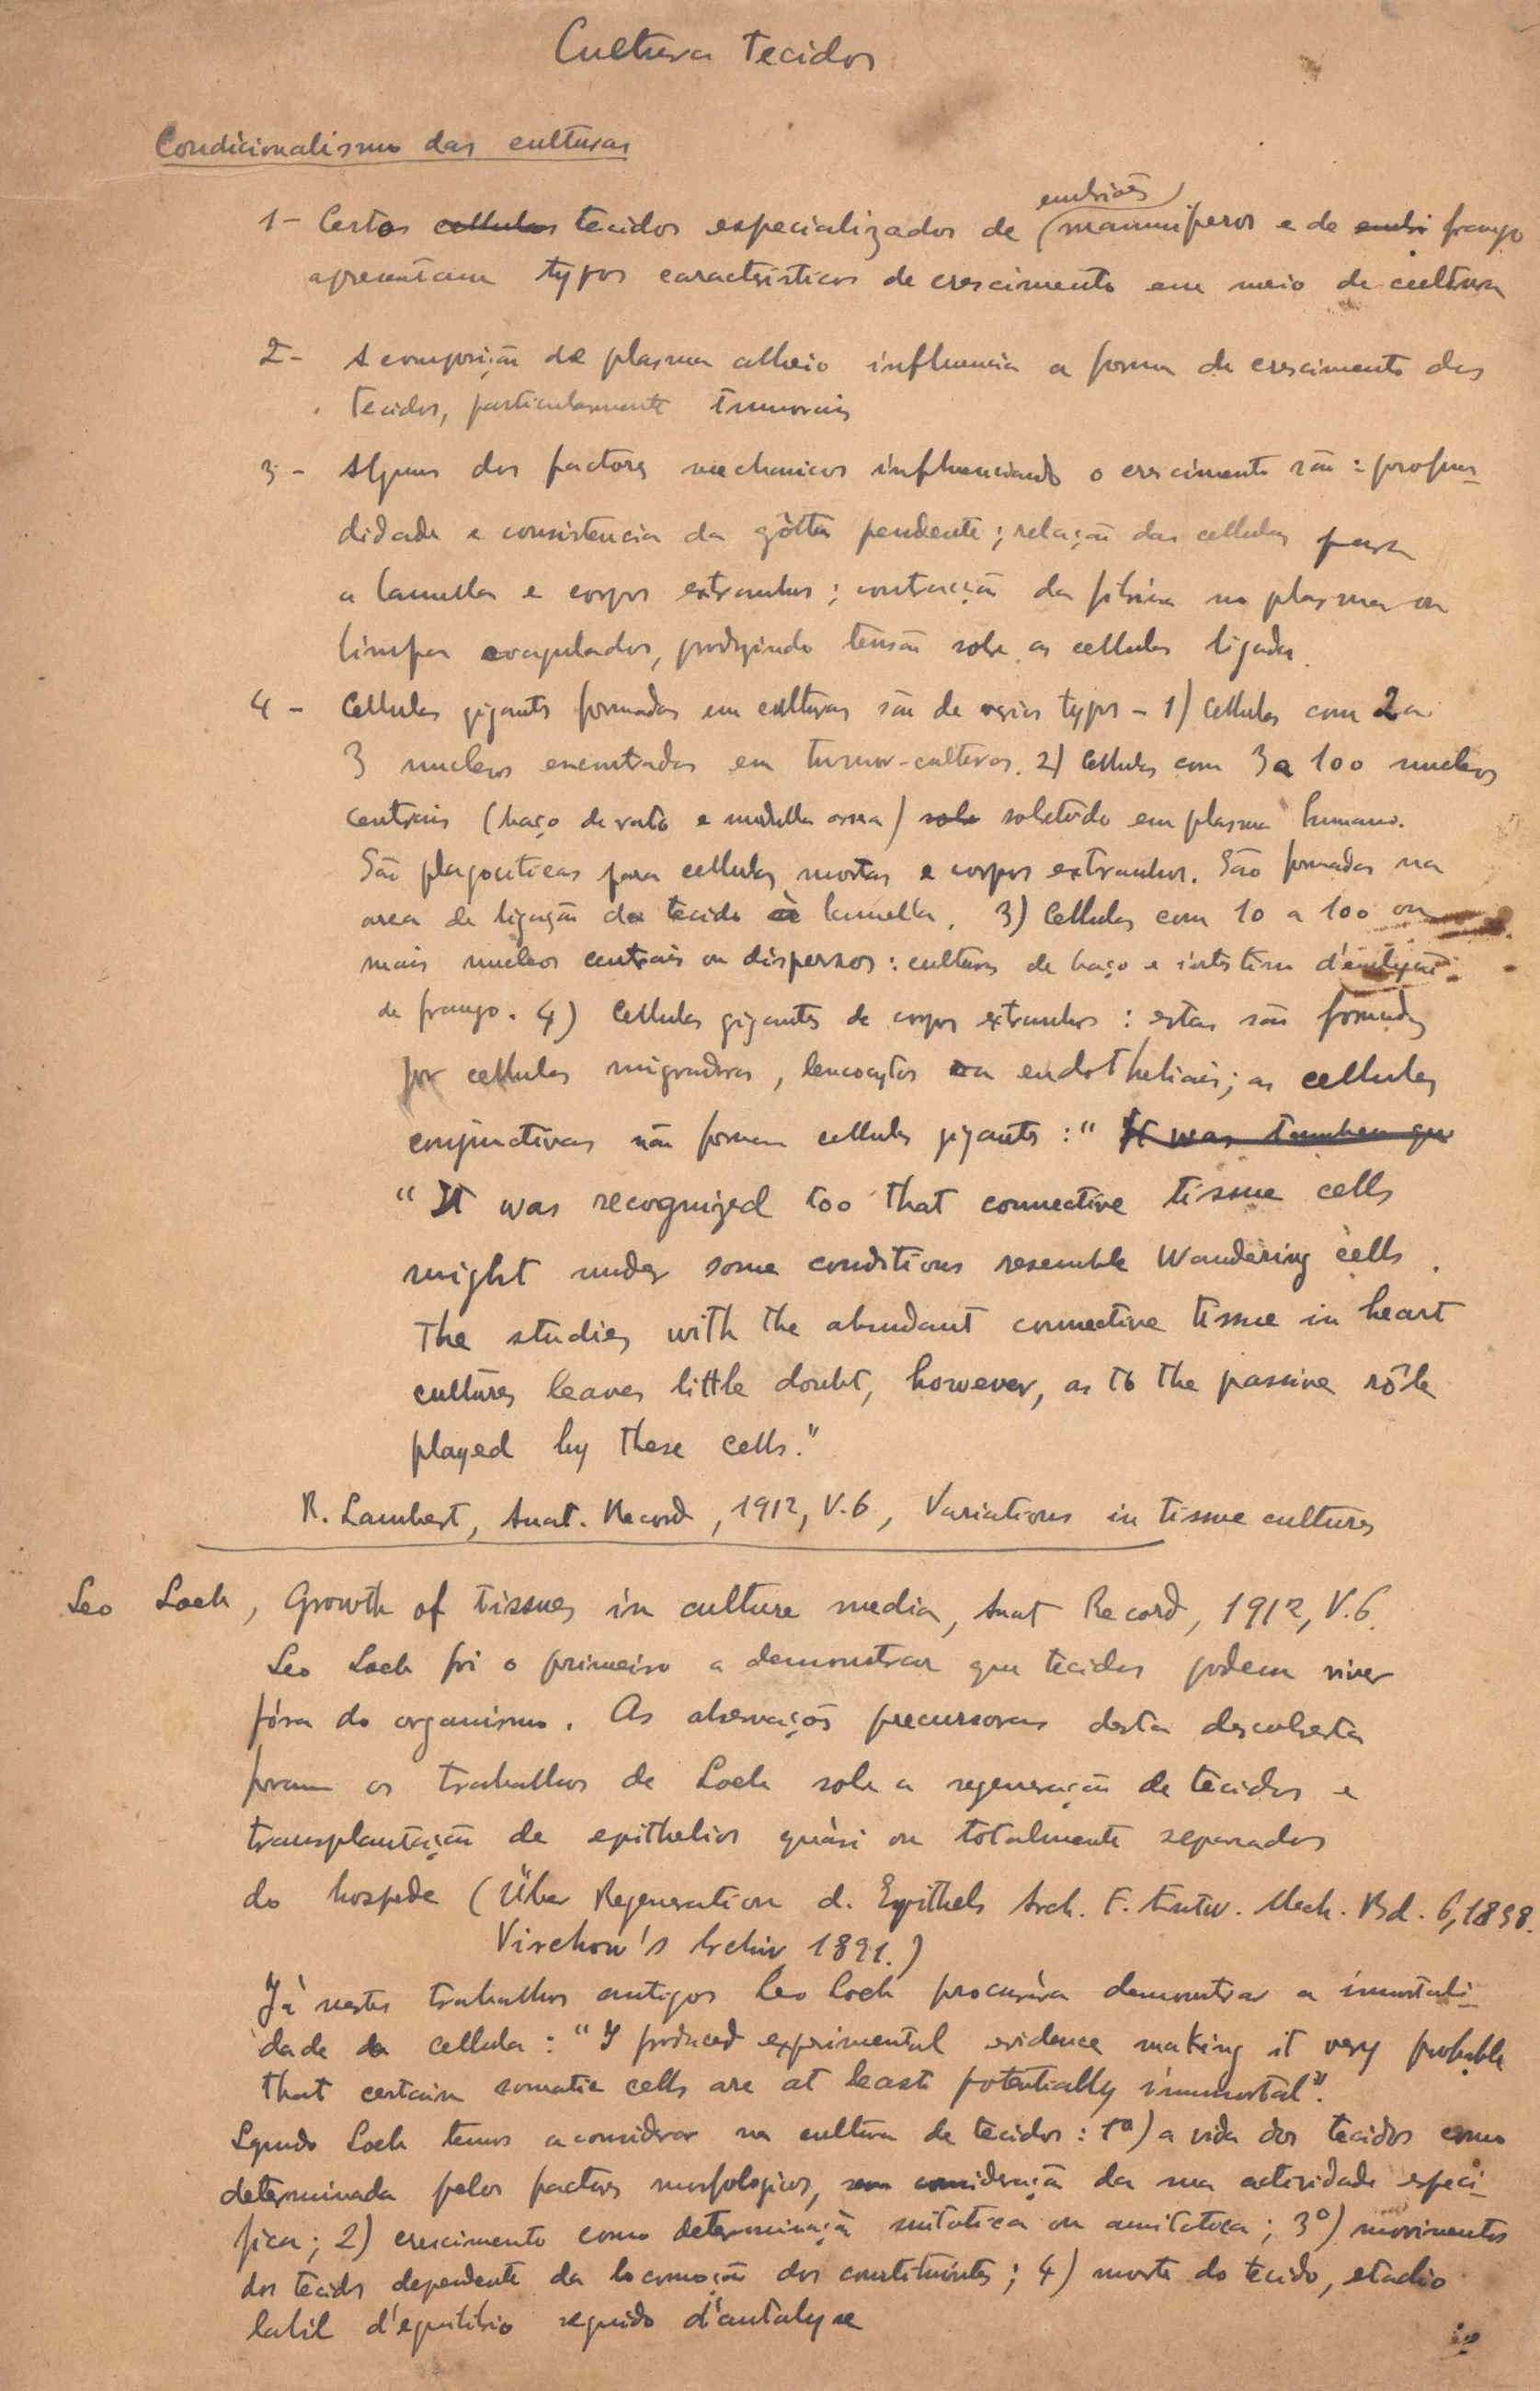 Cultura Tecidos
Condicionalismo das culturas
embriões
1- Certos cellulas tecidos especializados de mammiferos e de embri frango
apresentam typos caracteristicos de crescimento em meio de cultura
2- A composição de plasma alheio influencia a forma de crescimento dos
tecidos, particularmente tumorais
3- Alguns dos factores mechanicos influenciando o crescimento são: profun-
didade e consistencia da gôtta pendente; relação das cellulas para
a lamella e corpos extranhos; contracção da fibrina no plasma ou
limpha coagulados, produzindo tensão sobre as cellulas ligadas.
4- Cellulas gigantes formadas em culturas são de varios typos - 1) Cellulas com 2 a
3 nucleos encontradas em tumor-culturas. 2) Cellulas com 3 a 100 nucleos
centrais (baço de rato e medulla ossea) sobr sobretudo em plasma humano.
São phagociticas para cellulas mortas e corpos extranhos. São formadas na
area de ligação do tecido à lamella. 3) Cellulas com 10 a 100 ou
mais nucleos centrais ou dispersos: culturas de baço e intestino d'embryão
de frango. 4) Cellulas gigantes de corpos extranhos: estas são formadas
por cellulas migradoras, leucocytos ou endotheliais; as cellulas
conjunctivas não formam cellulas gigantes: " It was tambem que
"It was recognized too that connective tissue cells
might under some conditions resemble wandering cells.
The studies with the abundant connective tissue in heart
cultures leaves little doubt, however, as to the passive rôle
played by these cells."
R. Lambert, Anat. Record, 1912, V.6, Variations in tissue cultures
Leo Loeb, Growth of tissues in culture media, Anat Record, 1912, V.6.
Leo Loeb foi o primeiro a demonstrar que tecidos podem viver
fóra do organismo. As observações precursoras desta descoberta
foram os trabalhos de Loeb sobre a regeneração de tecidos e
transplantação de epithelios quási ou totalmente separados
do hospede (Über Regeneration d. Epithels Arch. F. Entw. Mech. Bd. 6, 1898.
Virchow's Archiv 1891.)
Já nestes trabalhos antigos Leo Loeb procurára demonstrar a immortali-
dade da cellula: "I produced experimental evidence making it very probable
that certain somatic cells are at least potentially immortal".
Segundo Loeb temos a considerar na cultura de tecidos: 1º) a vida dos tecidos como
determinada pelos factores morfologicos, sem consideração da sua actividade especi-
fica; 2) crescimento como determinação mitotica ou amitotica; 3º) movimentos
dos tecidos dependente da locomoção dos constituintes; 4) morte do tecido, estadio
labil d'equilibrio seguido d'autolyse